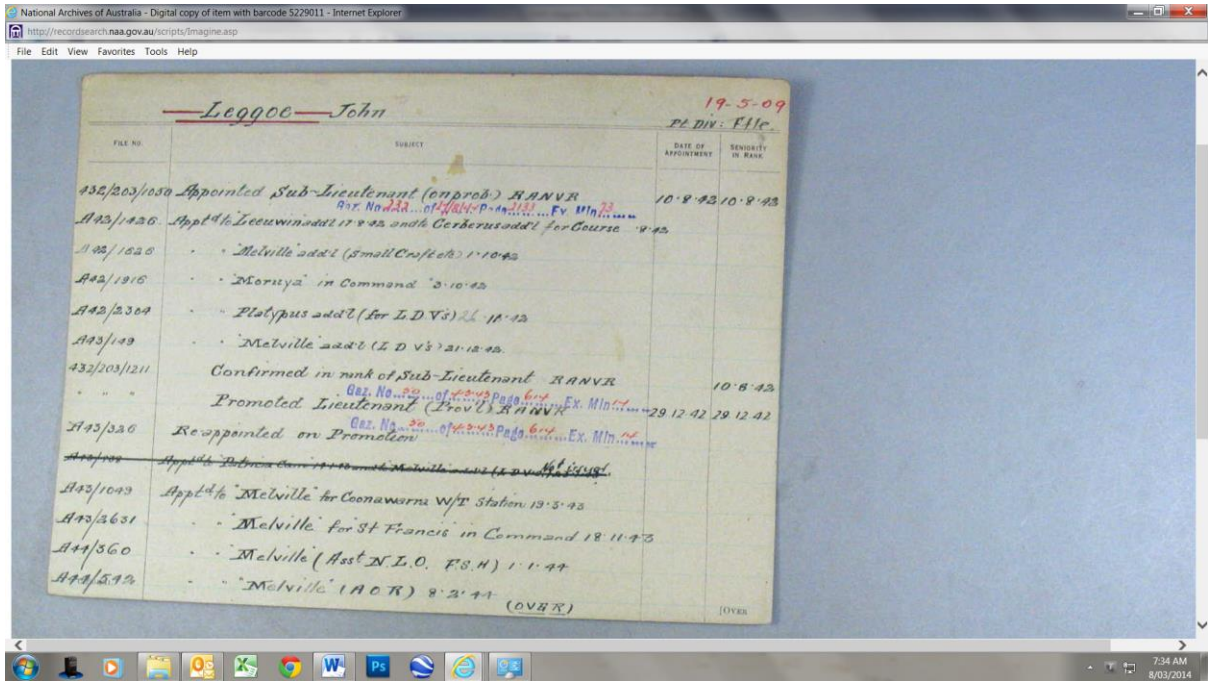 National Archives of Australia - Digital copy of item with barcode 5229011 - Internet Explorer
http://recordsearch.naa.gov.au/scripts/Imagine.asp
File Edit View Favorites Tools Help
Leggoe John 19-5-09
Pt Div: Ftle.
FILE NO. SUBJECT DATE OF APPOINTMENT SENIORITY IN RANK
432/203/1050 Appointed Sub-Lieutenant (on prob) RANVR 10.8.42 10.8.42
Gaz. No. 232 of Page 2133 Ex. Min 73
A42/1426 Appt'd to Leeuwin add'l 17.8.42 and to Cerberus add'l for Course .8.42
A42/1626 " " Melville add'l (Small Craft etc) 1.10.42
A42/1916 " " "Moruya" in Command 3.10.42
A42/2304 " " Platypus add'l (for L D V's) 26.10.42
A43/149 " " "Melville" add'l (L D V's) 21.12.42
432/203/1211 Confirmed in rank of Sub-Lieutenant RANVR 10.8.42
Gaz. No. 50 of 4.3.43 Page 614 Ex. Min 14
" " " Promoted Lieutenant (Prov'l) RANVR 29.12.42 29.12.42
Gaz. No. 50 of 4.3.43 Page 614 Ex. Min. 14
A43/326 Re-appointed on Promotion
Appt'd to Patricia Cam and to Melville add'l (L D V's) Not issued
A43/1049 Appt'd to "Melville" for Coonawarra W/T Station 19.3.43
A43/2631 " " "Melville" for St Francis in Command 18.11.43
A44/360 " " "Melville" (Asst N.L.O. F.S.H) 1.1.44
A44/542 " " "Melville" (A O R) 8.2.44
(OVER)
[OVER
7:34 AM
8/03/2014